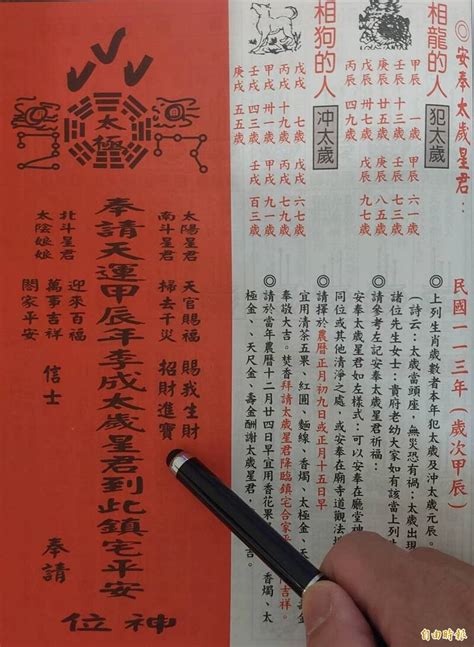 ◎安奉太歲星君：
相龍的人
犯太歲
甲辰 一歲 甲辰 六一歲
壬辰 十三歲 壬辰 七三歲
庚辰 廿五歲 庚辰 八五歲
戊辰 卅七歲 戊辰 九七歲
丙辰 四九歲
相狗的人
沖太歲
戊戌 七歲 戊戌 六七歲
丙戌 十九歲 丙戌 七九歲
甲戌 卅一歲 甲戌 九一歲
壬戌 四三歲 壬戌 百三歲
庚戌 五五歲
民國一一三年(歲次甲辰)
◎上列生肖歲數者本年犯太歲及沖太歲元辰。
(詩云：太歲當頭座，無災恐有禍：太歲出現
諸位先生女士：貴府老幼大家如有該當上列
請參考左記安奉太歲星君祈福：
安奉太歲星君如左樣式：可以安奉在廳堂神
同位或其他清淨之處，或安奉在廟寺道觀法
◎請擇於農曆正月初九日或正月十五日早
宜用清茶五果、紅圓、麵線、香燭、太極金、天
奉敬大吉。焚香拜請太歲星君降臨鎮宅合家平 吉祥。
◎請於當年農曆十二月廿四日早宜用香花果 香燭、太
極金、天尺金、壽金酬謝太歲星君， 吉。
太極
太陽星君
南斗星君
天官賜福 賜我生財
掃去千災 招財進寶
奉請天運甲辰年李成太歲星君到此鎮宅平安
北斗星君
太陰娘娘
迎來百福
萬事吉祥
閤家平安
信士
奉請
神位
自由時報